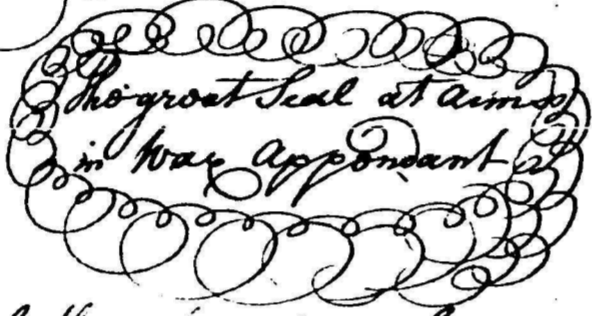 The great Seal at arms
in Wax Appendant